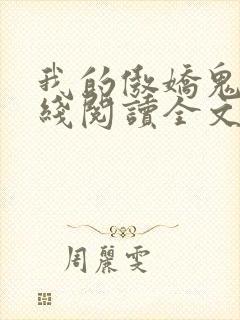 我的傲嬌鬼
綫閱讀全文
周麗雯